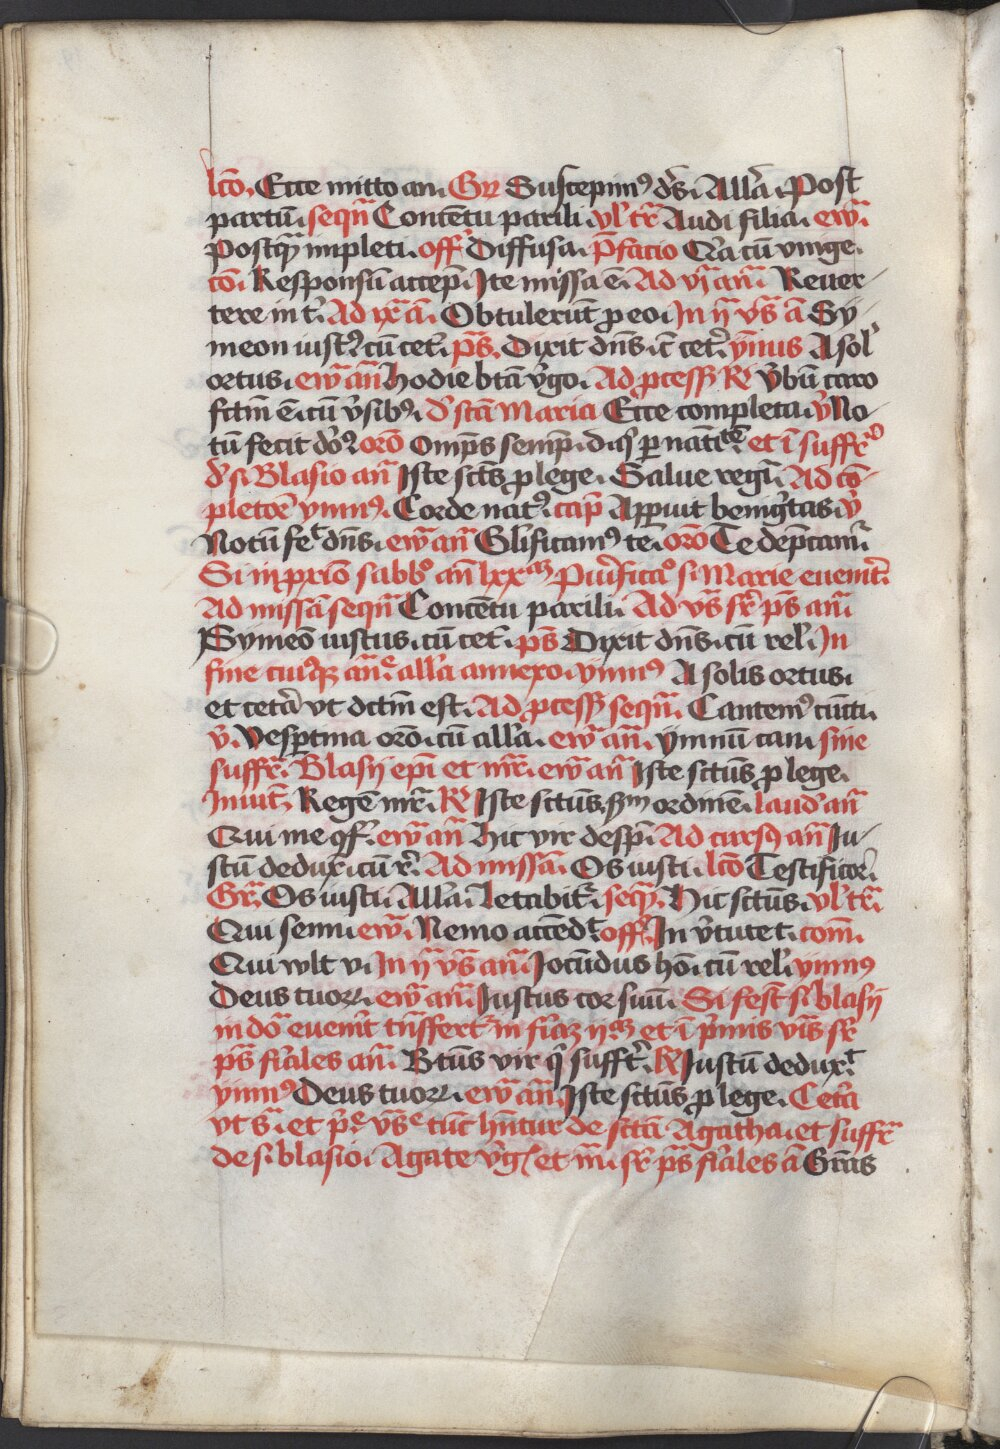 lcō. Ecce mitto an. Gr Suscepimꝰ ds̄. Allā. Post
partū. seqn̄ Concētu parili. vl̓ tr̄ Audi filia. ew̄.
Postq̄ impleti. off̄ Diffusa. p̄facio Qr̄a cū vnige.
cō. Responsū accep̄. Ite missa ē. Ad vj an̄. Reuer-
tere in t̓. Ad ix ā. Obtulerūt ꝓ eo. In ij vs̄ ā Sy-
meon iustꝰ cū cet̓. ps̄. Dixit dn̄s. c̄ cet̓. ymus A sol̓
ortus. ew̄ an̄ Hodie btā v̓go. Ad ꝓcess̄ R̓ v̓bū caro
fctm̄ ē. cū v̓sibꝰ. d̓ sctā Maria Ecce completa. v̓ No-
tū fecit do᷒. orō Omps̄ semp̄. d. qs̓ ꝑ natīte et ī suffr̄
d̓ s. Blasio an̄ Iste sct̄s ꝓ lege. Salue regī. Ad cō-
pletor̄ ymnꝰ. Corde natꝰ. cap̄ Apparuit benig̓tas v̓
Notū fect dn̄s. ew̄ an̄ Glīficamꝰ te. orō Te dep̄cam̄.
Si in pxiō sabb̓o an̄ lxxam Purificac̓o s. Marie euenit̓.
Ad missā seqn̄ Concētu parili. Ad vs̄ sr̄ ps̄ an̄.
Symeō iustus. cū cet̓. ps̄ Dixit dn̄s. cū rel̓. In
fine cuiꝰqꝫ an̄e all̓a annexo. ymnꝰ A solis ortus.
et cetā vt dctm̄ est. Ad ꝓcess̄ seqn̄. Cantemꝰ cūcti.
v̓. Vesp̄tina orō. cū all̓a. ew̄ an̄. ymnū can. sine
suffr̄. Blasij ep̄i et mr̄. ew̄ an̄ Iste sctūs ꝓ lege.
Inuit̄. Regē mr̄. R̓ Iste sctūs. scdm ordinē. laud̓ an̄
Qui me ꝯf̓. ew̄ an̄ Hic vir desp̄. Ad cursꝰ an̄ Iu-
stū dedux̄. cū r̓. Ad missā. Os iusti. lcō Testificor.
Gr̄. Os iusti. All̓a. Letabit̄. seq̄. Hic sctūs. vl̓ tr̄.
Qui semi. ew̄. Nemo accēdt̓. off̄. In v̓tute t. com̄.
Qui vult v. In ij vs̄ an̄. Iocūdus hō. cū rel̓. ymnꝰ
Deus tuoꝝ. ew̄ an̄. Iustus cor suū. Si fest̄ s. blasij
in do᷒ euenīt trn̄sfert̄ in fīaꝫ ijam et ī p̄mis vīs sr̄
ps̄ fīales an̄. Btūs vir q̓ sufft̓. R̓ Iustū duxt̓
ymnꝰ Deus tuoꝝ. ew̄ an̄. Iste sctūs ꝓ lege. Cet̓a
vt s̄. et p̓e vs̄e tūc hn̄tur de sctā Agatha. et suffr̄
de s. blasio. Agate v̓g. et m̄. sr̄ ps̄ fīales ā Grās